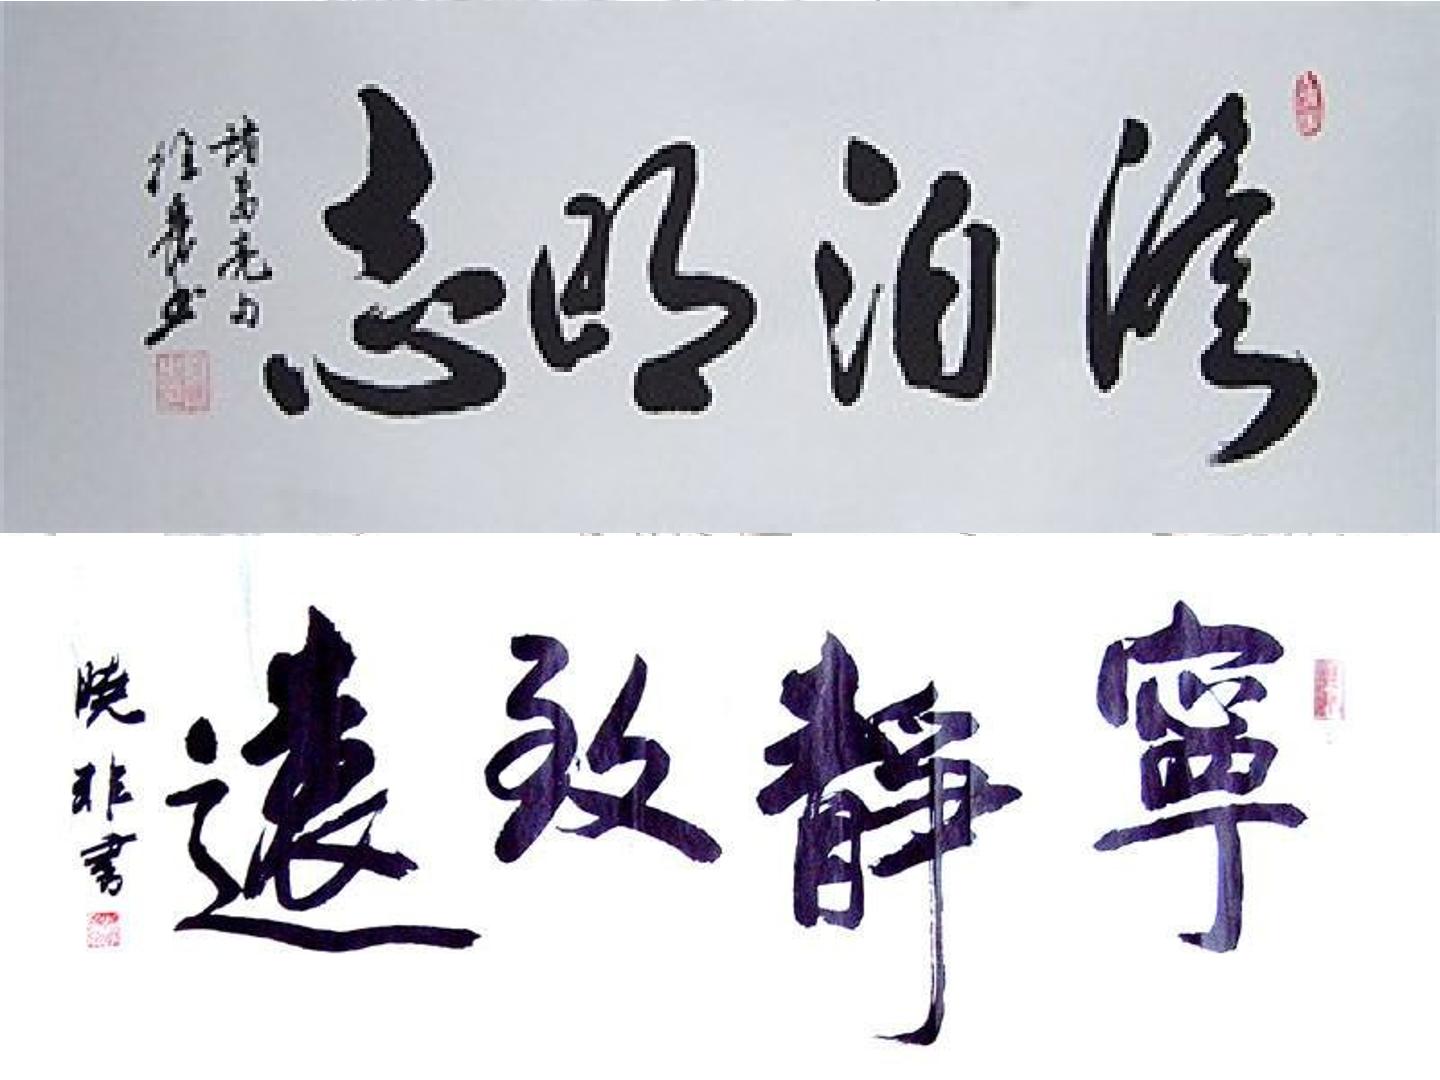 澹泊明志
诸葛亮句
寧靜致遠
晓非書